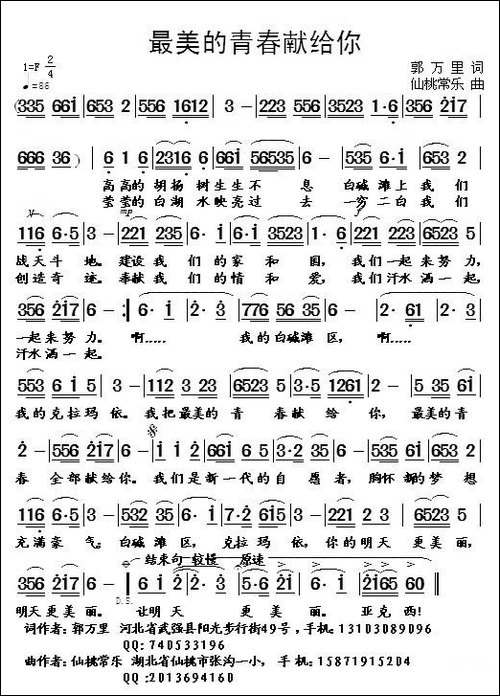 最美的青春献给你
1=F 2/4
♩=88
郭万里 词
仙桃常乐 曲
(335 66i | 6532 | 556 1612 | 3 - | 223 556 | 3523 1·6 | 356 2i7 |
666 36) | 6 1 6 | 2316 6 | 66i 56535 | 6 - | 535 6·i | 653 2 |
高高的 胡杨 树生生不 息 白碱滩上 我们
莹莹的 白湖 水映亮过 去 一穷二白 我们
116 6·5 | 3 - | 221 235 | 6· i | 6·i 6523 | 1 - | 223 5 | 6523 5 |
战天斗 地。建设我 们的家和国，我们一起来努力，
创造奇 迹。奉献我 们的情和爱，我们汗水洒一起，
356 2i7 | 6 - :| 6· i | 2· 3 | 776 56 35 | 6 - | 2· 61 | 2· 3 |
一起来努 力。 啊..... 我的白碱滩 区， 啊.....
汗水洒一 起。
553 6 i 5 | 3 - | 112 3 23 | 6523 5 | 3·5 1261 | 2 - | 335 6i |
我的克拉玛 依。我把最美的 青 春献 给 你，最美的青
2 - | 556 2i7 | 6 - | i i 2 | 66i 6 5 | 3·2 35 | 6 - | 556 i 6 5 |
春 全部献给你。我们是新一代的自愿者，胸怀新的梦想
116 6·5 | 3 - | 532 35 | 6· i | 6·5 35 | 2 - | 221 23 | 6523 5 |
充满豪 气；白碱滩区，克拉玛依，你的明天更美丽，
结束句 较慢 原速
356 2i7 | 6 - | 6 i2 | 2· 3 | 5·6 2i | 6 - | 2i65 60 ‖
D.S.
明天更美丽。 让明天 更美丽。 亚克西!
词作者：郭万里 河北省武强县阳光步行街49号，手机：13103089096
QQ:740533196
曲作者：仙桃常乐 湖北省仙桃市张沟一小，手机：15871915204
QQ:2013694160